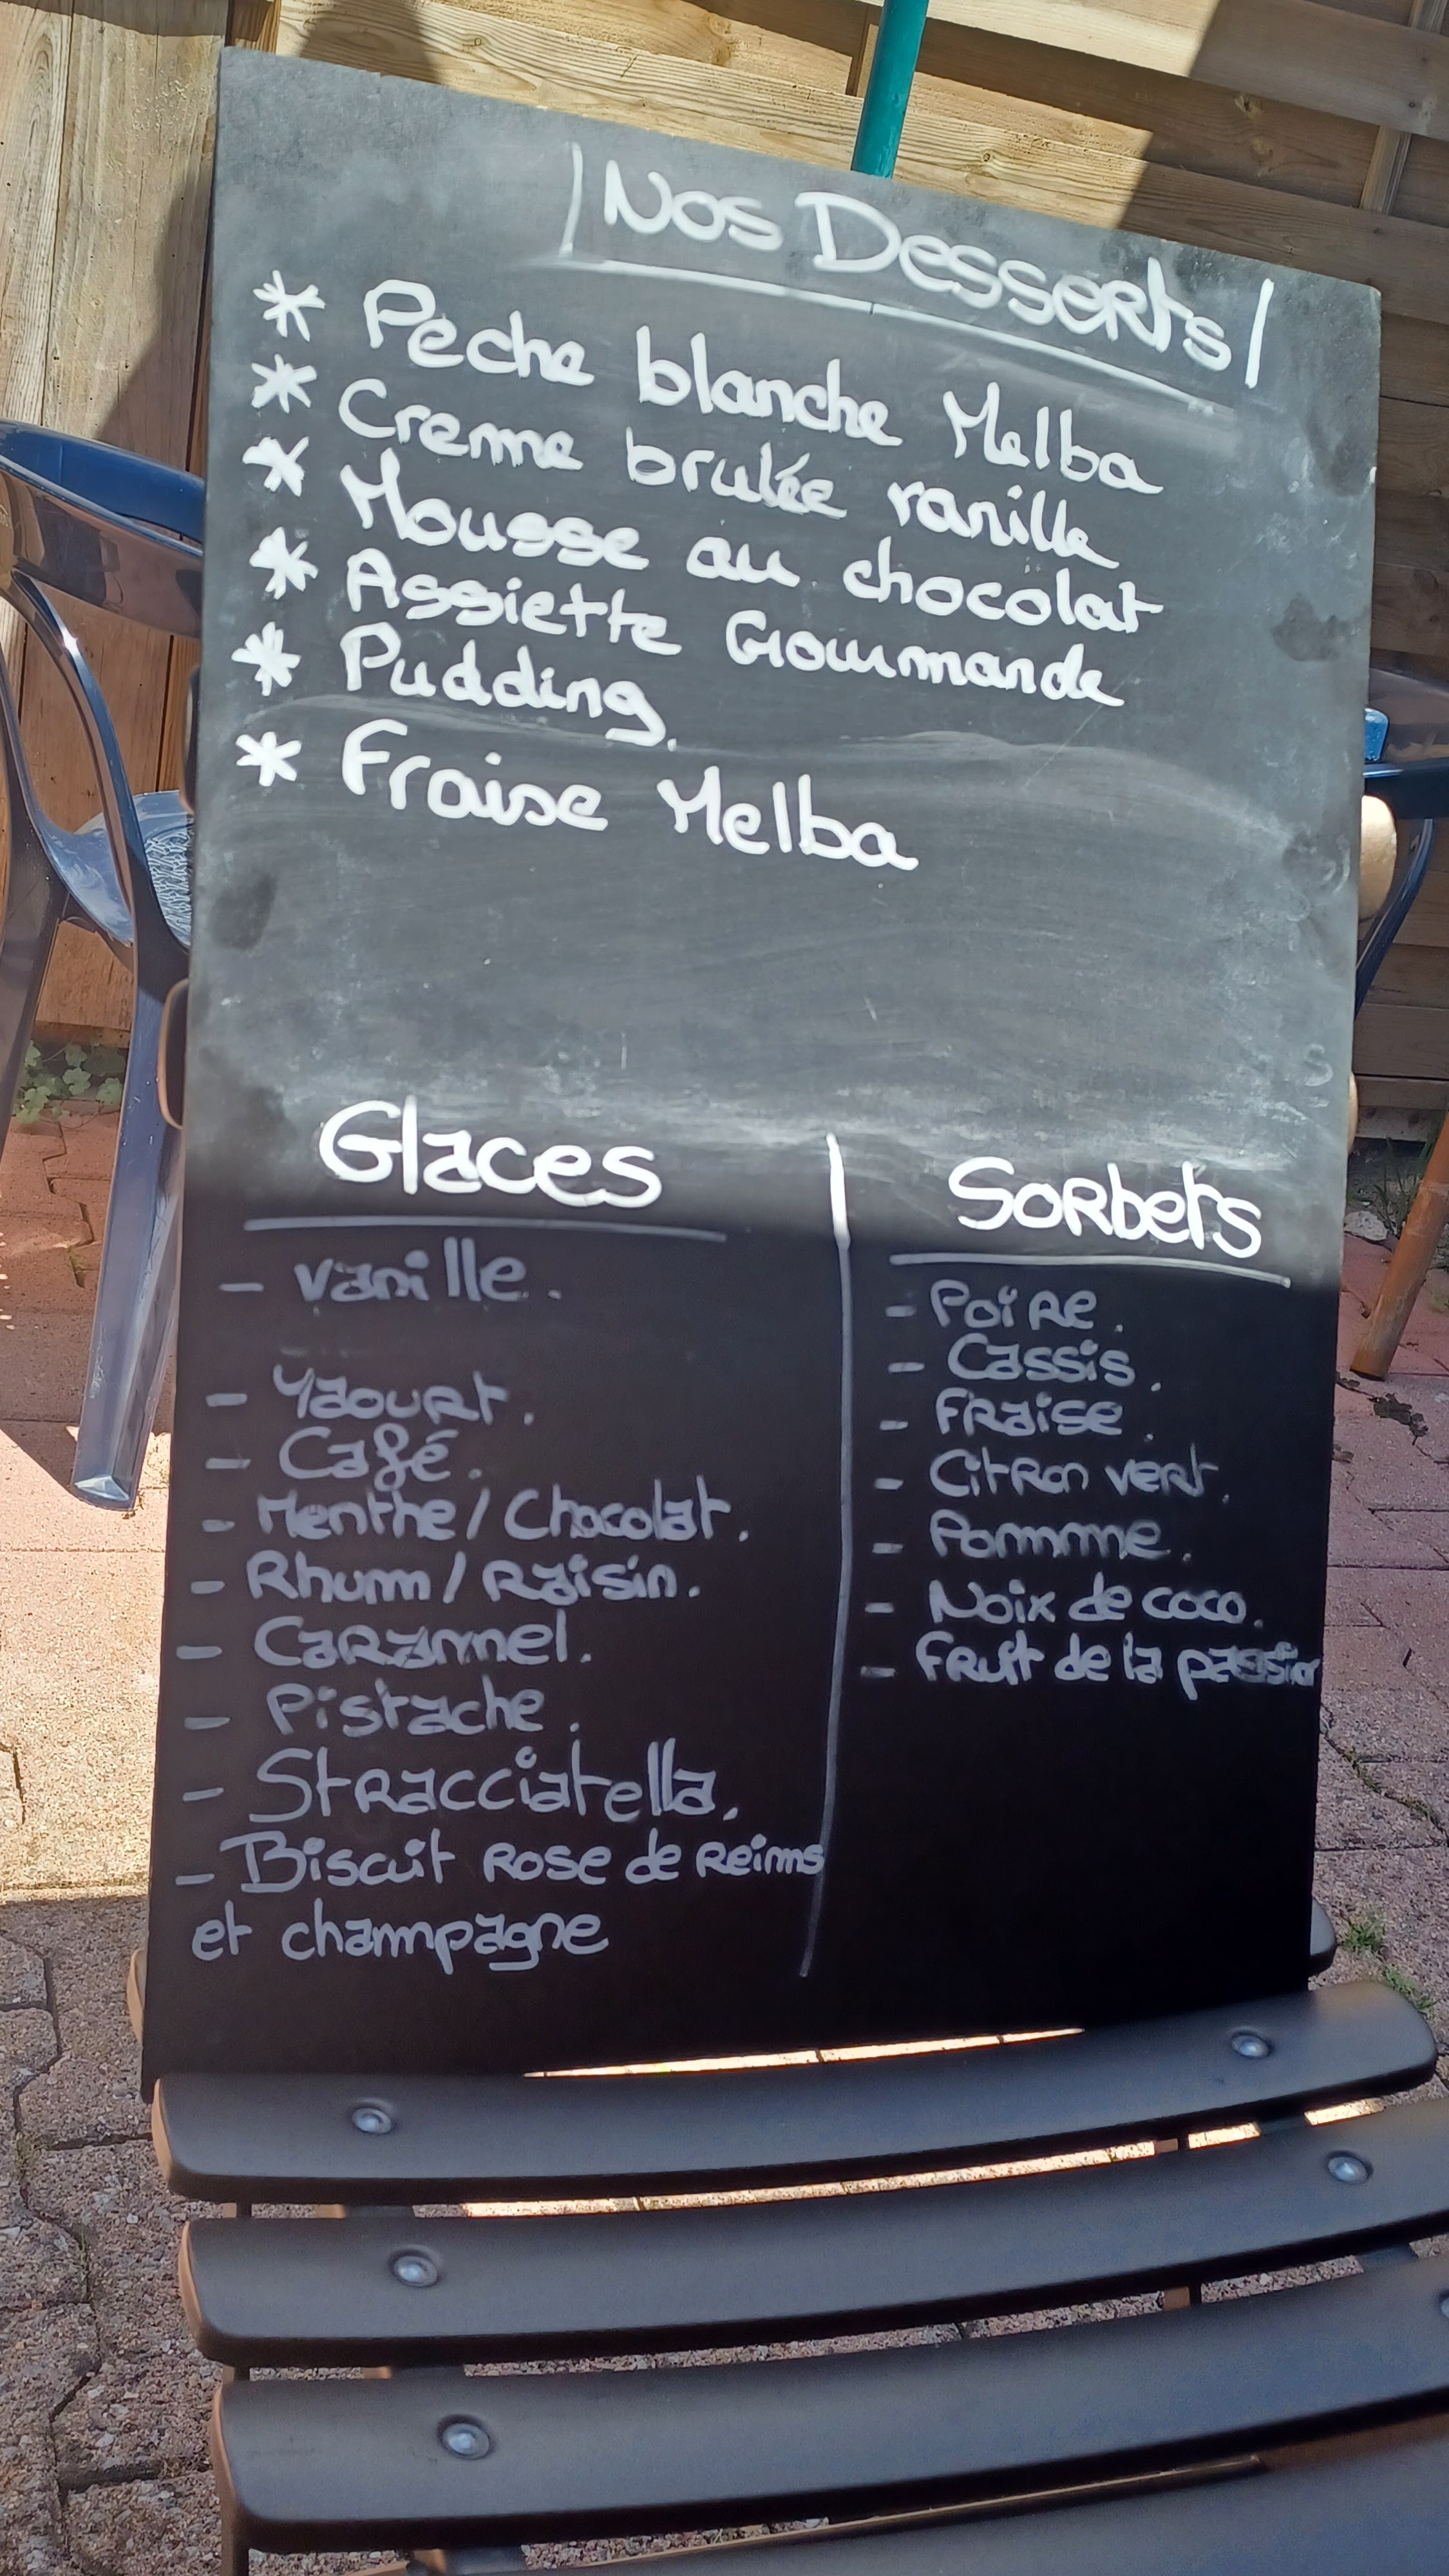 Nos Desserts
* Pêche blanche Melba
* Creme brulée vanille
* Mousse au chocolat
* Assiette Gourmande
* Pudding.
* Fraise Melba
Glaces
- vanille.
- Yaourt.
- Café.
- Menthe / Chocolat.
- Rhum / Raisin.
- Caramel.
- Pistache.
- Stracciatella.
- Biscuit Rose de Reims
et champagne
Sorbets
- Poire.
- Cassis.
- Fraise.
- Citron vert.
- Pomme.
- Noix de coco.
- Fruit de la passion